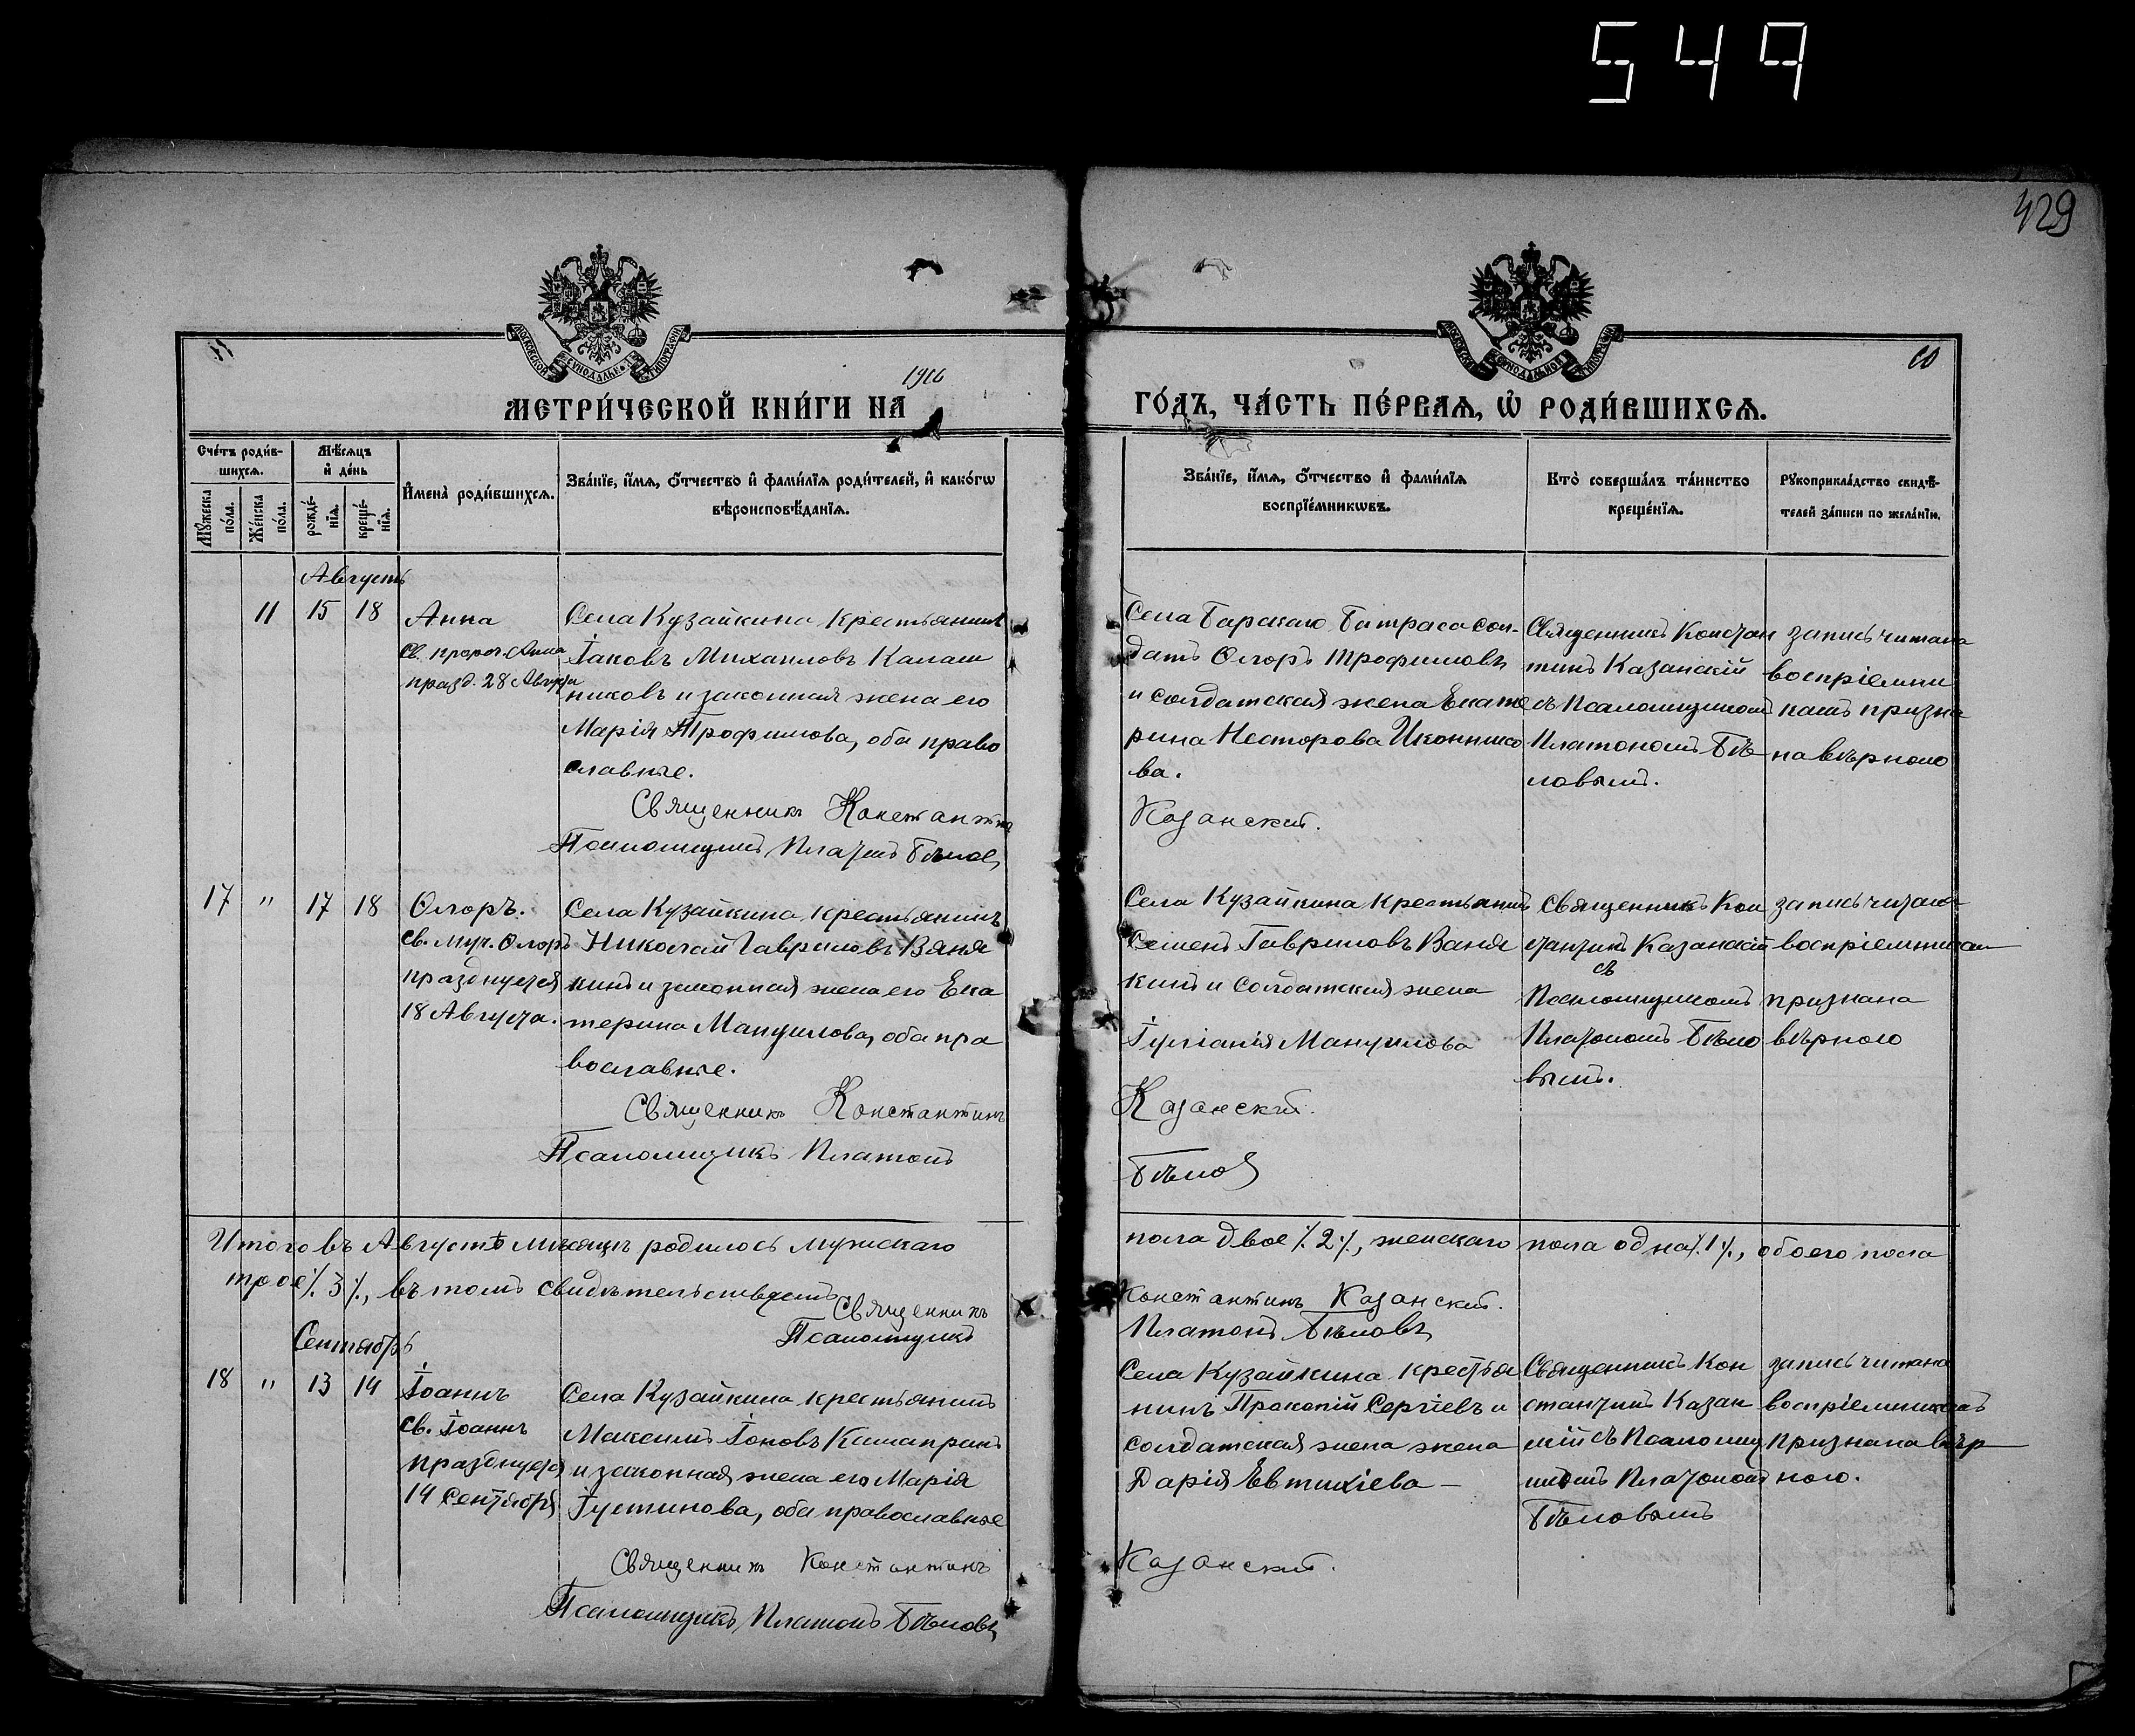 549
429
МОСКОВСКОЙ СѴНОДАЛЬНОЙ ТИПОГРАФІИ
МОСКОВСКОЙ СѴНОДАЛЬНОЙ ТИПОГРАФІИ
1916
МЕТРИ́ЧЕСКОЙ КНИ́ГИ НА
ГО́ДЪ, ЧА́СТЬ ПЕ́РВАѦ, Ѡ҆ РОДИ́ВШИХСѦ.
Сче́тъ роди́в-
шихсѧ.
Мѣ́сѧцъ
и҆ де́нь
Мꙋ́жеска
по́ла.
Же́нска
по́ла.
рожде́-
нїѧ.
креще́-
нїѧ.
И҆мена̀ роди́вшихсѧ.
Зва́нїе, и҆́мѧ, ѻ҆́тчество и҆ фами́лїѧ роди́телей, и҆ како́гѡ
вѣроисповѣ́данїѧ.
Зва́нїе, и҆́мѧ, ѻ҆́тчество и҆ фами́лїѧ
воспрїе́мникѡвъ.
Кто̀ соверша́лъ та́инство
креще́нїѧ.
Рꙋкоприкла́дство свидѣ́-
телей за́писи по жела́нїю.
Августъ
11 15 18
Анна
Св. пророч. Анна
празд. 28 Августа
Села Кузайкина крестьянинъ
Іаковъ Михаиловъ Калаш
никовъ и законная жена его
Марія Трофимова, оба право
славные.
Священникъ Константинъ
Псаломщикъ Платонъ Бѣловъ
Села Батраса сол-
датъ Флоръ Трофимовъ
и солдатская жена Екате
рина Несторова Иконнико
ва.
Казанский.
Священникъ Констан
тинъ Казанскій
съ Псаломщикомъ
Платономъ Бѣ
ловымъ.
запись читана
воспріемни
камъ призна
на вѣрною
17 " 17 18
Флоръ.
Св. муч. Флоръ
празднуется
18 Августа.
Села Кузайкина крестьянинъ
Николай Гавриловъ Ваня
кинъ и законная жена его Ека
терина Мануилова, оба пра
вославные.
Священникъ Константинъ
Псаломщикъ Платонъ
Села Кузайкина крестьянинъ
Семенъ Гавриловъ Ваня
кинъ и солдатская жена
Іуліанія Мануилова
Казанский.
Бѣлов
Священникъ Кон
стантинъ Казанскій
съ
Псаломщикомъ
Платономъ Бѣло
вымъ.
запись читана
воспріемникам
признана
вѣрною
Итого въ Августѣ мѣсяцѣ родилось мужскаго
пола двое ٪ 2 ٪, женскаго пола одна ٪ 1 ٪, обоего пола
трое ٪ 3 ٪, въ томъ свидѣтельствуемъ
Священникъ
Константинъ Казанский.
Псаломщикъ
Платонъ Бѣловъ
Сентябрь
18 " 13 14
Іоаннъ
Св. Іоаннъ
празднуется
14 Сентября
Села Кузайкина крестьянинъ
Максимъ Іоновъ
и законная жена его Марія
Іустинова, оба православные
Священникъ Константинъ
Псаломщикъ Платонъ Бѣловъ
Села Кузайкина крестья
нинъ Прокопій Сергіевъ и
солдатская жена жена
Дарія Евтихіева —
Казанский.
Священникъ Кон
стантинъ Казан
скій съ Псаломщ
икомъ Платономъ
Бѣловымъ
запись читана
воспріемникамъ
признана вѣр
ною.